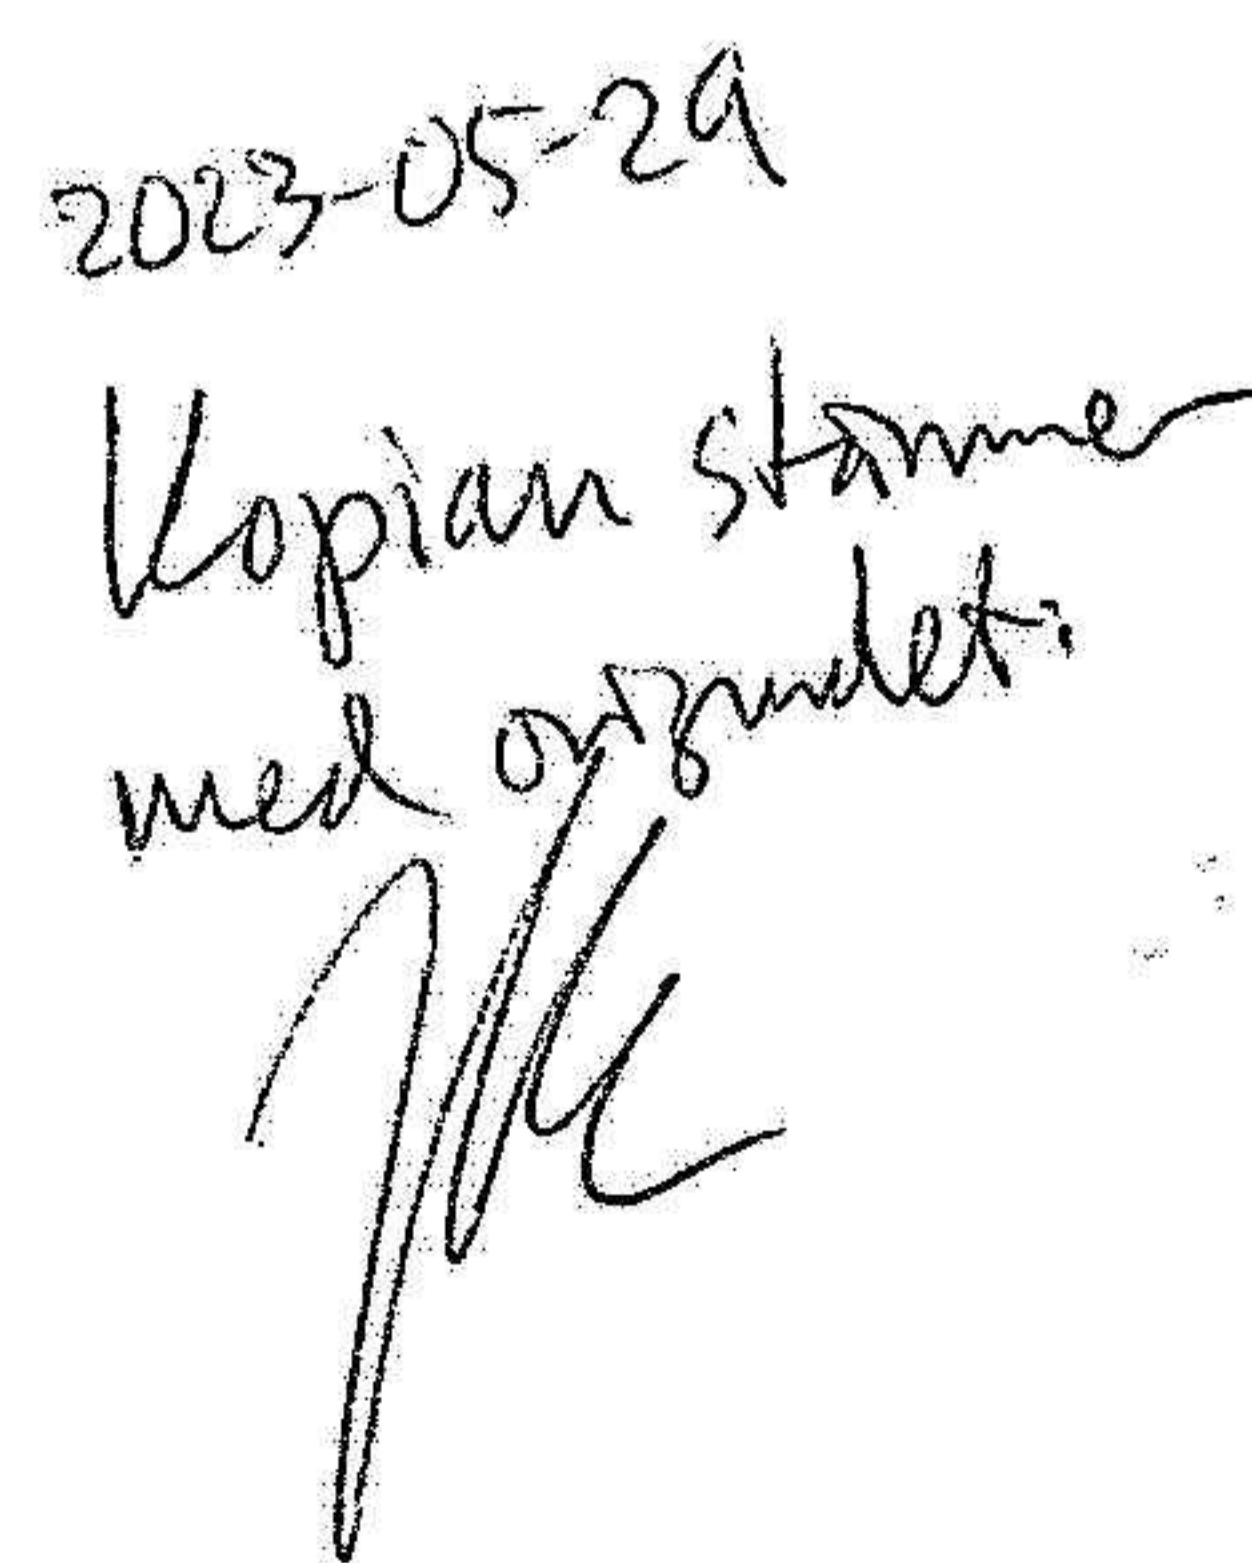 2023-05-29
Kopian stämmer
med originalet.